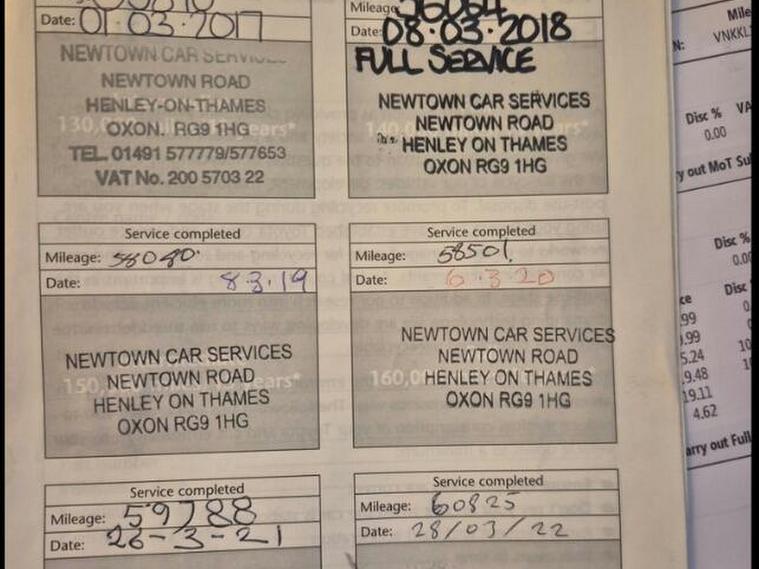 Date: 01·03·2017
NEWTOWN CAR SERVICES
NEWTOWN ROAD
HENLEY-ON-THAMES
OXON. RG9 1HG
TEL. 01491 577779/577653
VAT No. 200 5703 22
Mileage: 56064
Date: 08·03·2018
FULL SERVICE
NEWTOWN CAR SERVICES
NEWTOWN ROAD
HENLEY ON THAMES
OXON RG9 1HG
Service completed
Mileage: 58080.
Date: 8.3.19
NEWTOWN CAR SERVICES
NEWTOWN ROAD
HENLEY ON THAMES
OXON RG9 1HG
150,0
ears*
Service completed
Mileage: 58501.
Date: 6.3.20
NEWTOWN CAR SERVICES
NEWTOWN ROAD
HENLEY ON THAMES
OXON RG9 1HG
160,0
ears*
Service completed
Mileage: 59788
Date: 26-3-21
Service completed
Mileage: 60825
Date: 28/03/22
Mile
N: VNKKL
Disc % VA
0.00
y out MoT Su
Disc %
0.00
ce Disc
.99
.99
5.24 10
9.48
19.11
4.62
arry out Full